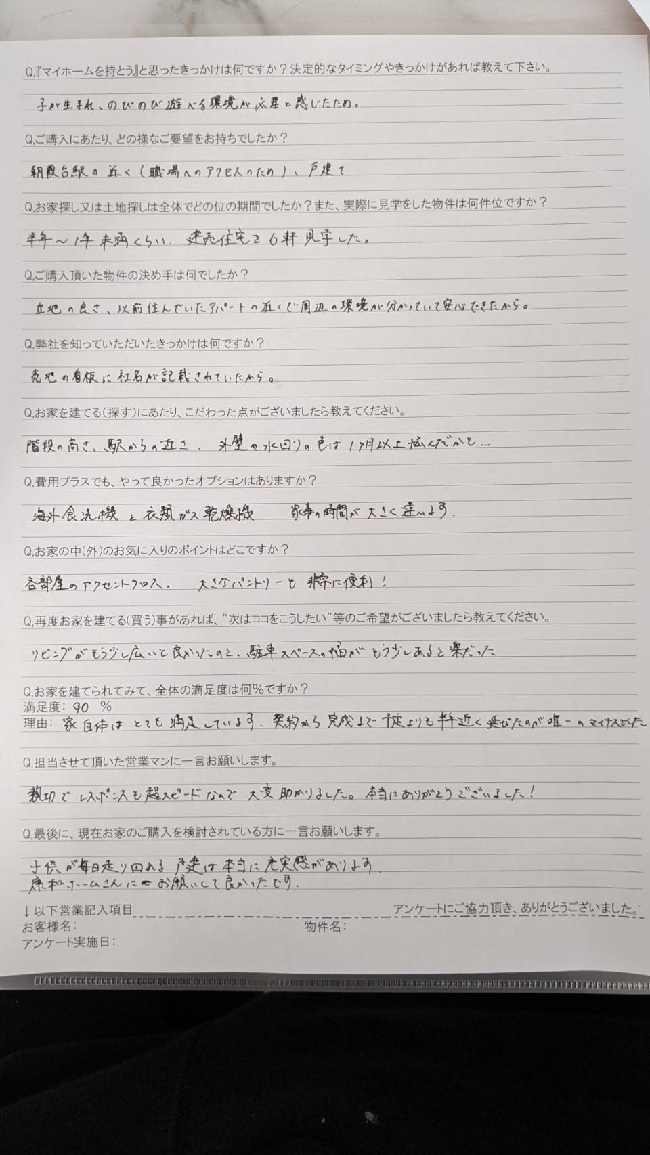 Q.『マイホームを持とう』と思ったきっかけは何ですか？決定的なタイミングやきっかけがあれば教えて下さい。
子が生まれ、のびのび遊べる環境が必要と感じたため。
Q.ご購入にあたり、どの様なご要望をお持ちでしたか？
朝霞台駅の近く（職場へのアクセスのため）、戸建て
Q.お家探し又は土地探しは全体でどの位の期間でしたか？また、実際に見学をした物件は何件位ですか？
半年～1年未満くらい、建売住宅を6軒見学した。
Q.ご購入頂いた物件の決め手は何でしたか？
立地の良さ、以前住んでいたアパートの近くで周辺の環境が分かっていて安心できたから。
Q.弊社を知っていただいたきっかけは何ですか？
売地の看板に社名が記載されていたから。
Q.お家を建てる（探す）にあたり、こだわった点がございましたら教えてください。
階段の高さ、駅からの近さ、外壁や水回りの色は1ヶ月以上悩んだかと…
Q.費用プラスでも、やって良かったオプションはありますか？
海外食洗機と衣類ガス乾燥機 家事の時間が大きく違います。
Q.お家の中（外）のお気に入りのポイントはどこですか？
各部屋のアクセントクロス。 大きなパントリーも非常に便利！
Q.再度お家を建てる（買う）事があれば、“次はココをこうしたい”等のご希望がございましたら教えてください。
リビングがもう少し広いと良かったのと、駐車スペースの幅がもう少しあると楽だった
Q.お家を建てられてみて、全体の満足度は何％ですか？
満足度： 90 ％
理由： 家自体はとても満足しています。契約から完成まで予定よりも半年近く延びたのが唯一のマイナスでした
Q.担当させて頂いた営業マンに一言お願いします。
親切でレスポンスも超スピードなので大変助かりました。本当にありがとうございました！
Q.最後に、現在お家のご購入を検討されている方に一言お願いします。
子供が毎日走り回れる戸建は本当に充実感があります。
ホームさんにお願いして良かったです。
↓以下営業記入項目 アンケートにご協力頂き、ありがとうございました。
お客様名： 物件名：
アンケート実施日：